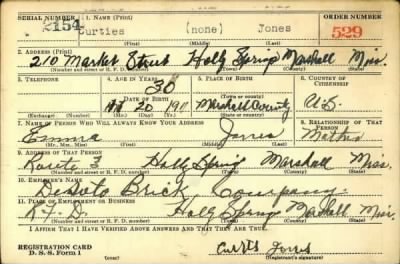 SERIAL NUMBER 1. NAME (Print) ORDER NUMBER
2154 Curties (none) Jones 529
(First) (Middle) (Last)
2. ADDRESS (Print)
210 Market Street Holly Springs Marshall Miss.
(Number and street or R. F. D. number) (Town) (County) (State)
3. TELEPHONE 4. AGE IN YEARS 5. PLACE OF BIRTH 6. COUNTRY OF CITIZENSHIP
30
DATE OF BIRTH (Town or county)
20 Marshall County U.S.
(Exchange) (Number) (Mo.) (Day) (Yr.) (State or country)
7. NAME OF PERSON WHO WILL ALWAYS KNOW YOUR ADDRESS 8. RELATIONSHIP OF THAT PERSON
Emma Jones Mother
(Mr., Mrs., Miss) (First) (Middle) (Last)
9. ADDRESS OF THAT PERSON
Route 3 Holly Spring Marshall Miss.
(Number and street or R. F. D. number) (Town) (County) (State)
10. EMPLOYER'S NAME
DeSoto Brick Company
11. PLACE OF EMPLOYMENT OR BUSINESS
R.F.D. Holly Springs Marshall Miss.
(Number and street or R. F. D. number) (Town) (County) (State)
I AFFIRM THAT I HAVE VERIFIED ABOVE ANSWERS AND THAT THEY ARE TRUE.
REGISTRATION CARD
D. S. S. Form 1 Curtis Jones